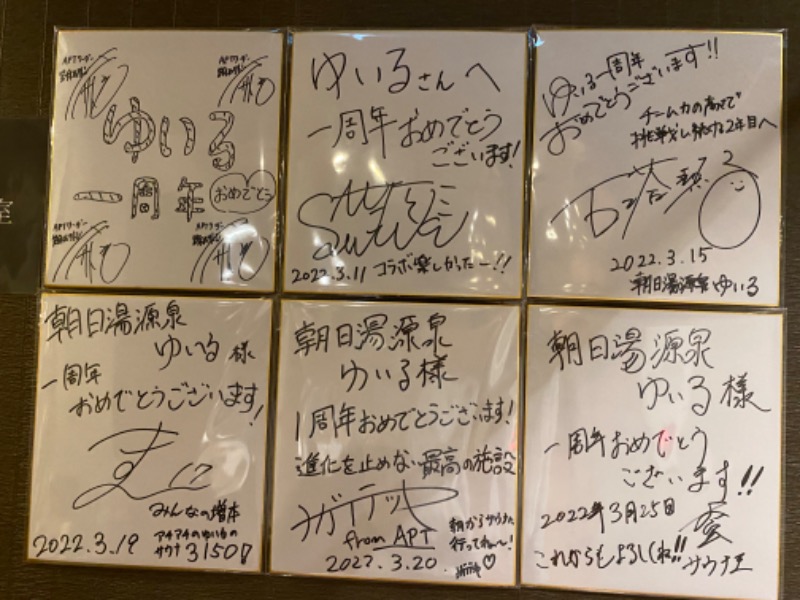 ゆいる
一周年
おめでとう
ゆいるさんへ
一周年おめでとう
ございます!
2022.3.11 コラボ楽しかったー!!
ゆいる一周年
おめでとうございます!!
チーム力の高さで
挑戦し続ける2年目へ
2022.3.15
朝日湯源泉ゆいる
朝日湯源泉
ゆいる様
一周年
おめでとうございます!
みんなの増本
アチアチのゆいるの
サウナ 3150!!
2022.3.19
朝日湯源泉
ゆいる様
1周年おめでとうございます!
進化を止めない最高の施設
from APT
朝からサウナ
行ってね〜!
2022.3.20
朝日湯源泉
ゆいる様
一周年おめでとう
ございます!!
2022年3月25日
これからもよろしくね!!
サウナ王